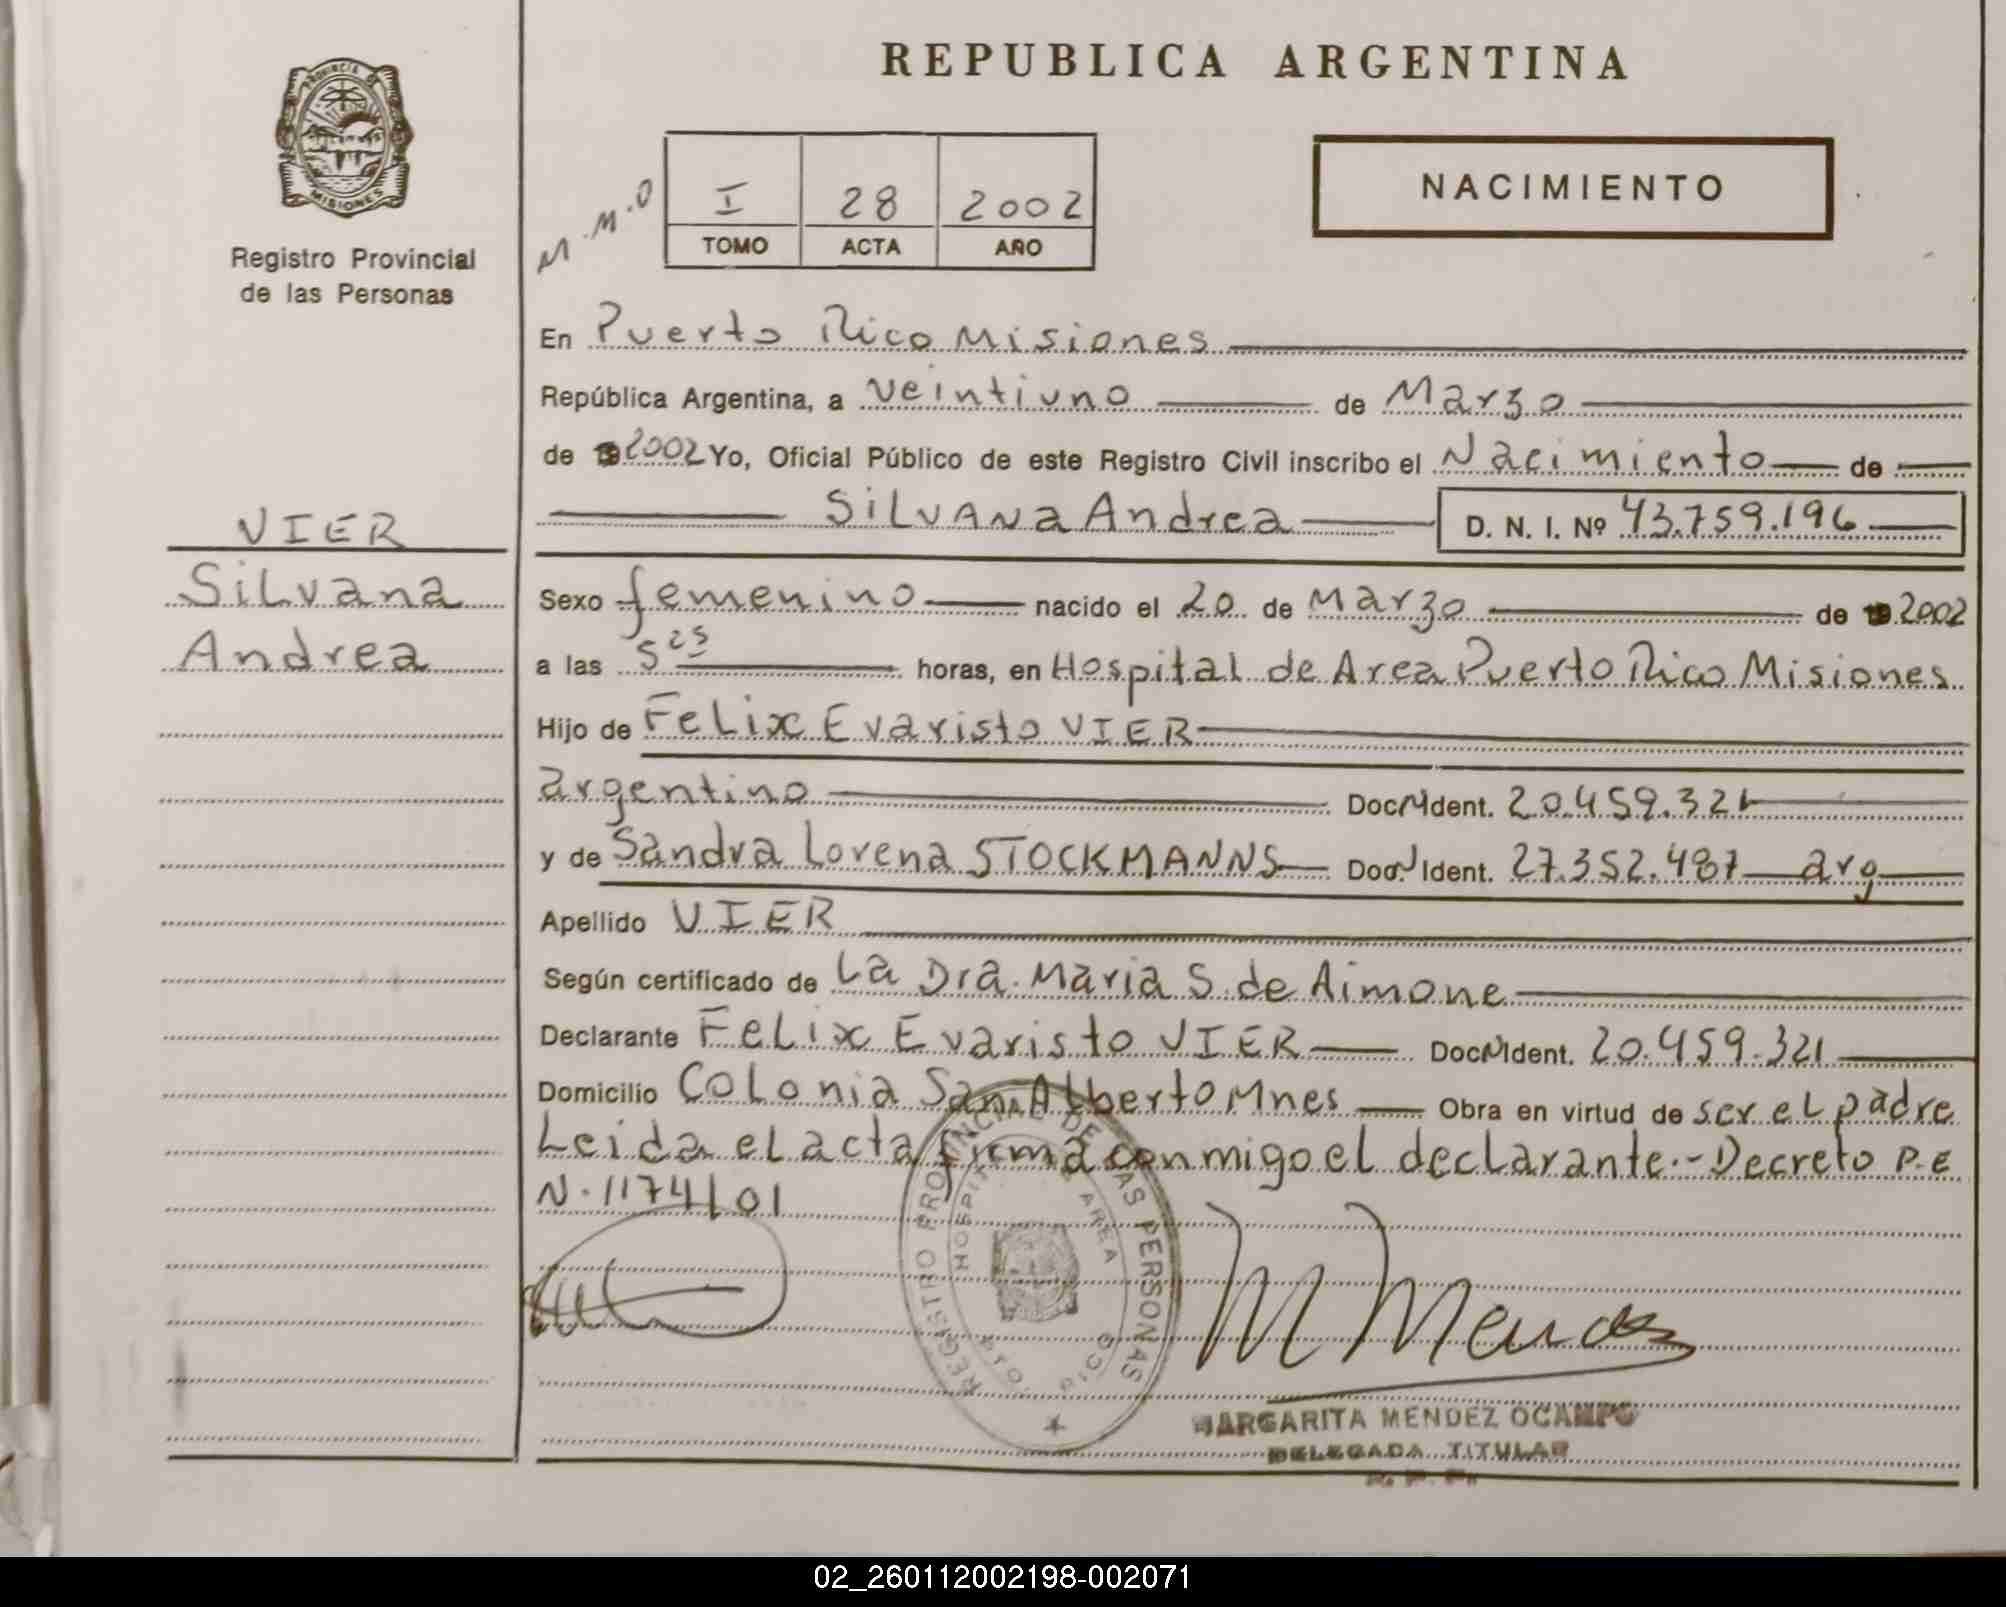 REPUBLICA ARGENTINA
PROVINCIA DE
MISIONES
Registro Provincial
de las Personas
M.M.O
I 28 2002
TOMO ACTA AÑO
NACIMIENTO
VIER
Silvana
Andrea
En Puerto Rico Misiones
República Argentina, a veintiuno de Marzo
de 2002 Yo, Oficial Público de este Registro Civil inscribo el Nacimiento de
SiLVANa Andrea D. N. I. Nº 43.759.196
Sexo femenino nacido el 20 de Marzo de 2002
a las 5 25 horas, en Hospital de Area Puerto Rico Misiones
Hijo de FeLix Evaristo VIER
argentino Doc N Ident. 20.459.321
y de Sandra Lorena STOCKMANNS Doc N Ident. 27.352.487 arg
Apellido VIER
Según certificado de La Dra. Maria S. de Aimone
Declarante FeLix Evaristo VIER Doc N Ident. 20.459.321
Domicilio COLonia San Alberto Mnes Obra en virtud de ser eL padre
Leida eL acta firma conmigo el decLarante.- Decreto P.E
N. 1174/01
REGISTRO PROVINCIAL DE LAS PERSONAS
HOSPITAL DE AREA
PTO. RICO
M Mendez
MARGARITA MENDEZ OCAMPO
DELEGADA TITULAR
R. P. P.
02_260112002198-002071